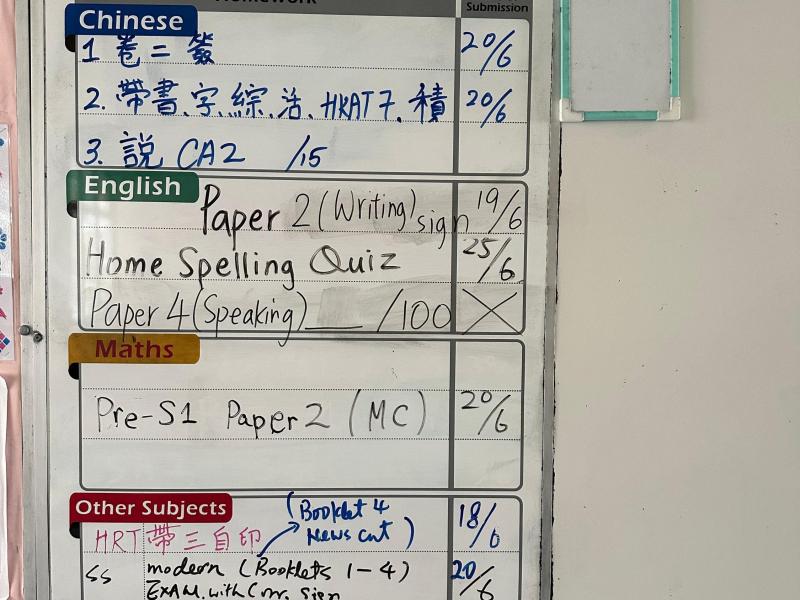 Homework
Submission
Chinese
1 卷二簽 20/6
2. 帶書、字、綜、活、HKAT7、積 20/6
3. 說 CA2 /15
English
Paper 2 (Writing) sign 19/6
Home Spelling Quiz 25/6
Paper 4 (Speaking)___ /100
Maths
Pre-S1 Paper 2 (MC) 20/6
Other Subjects
(Booklet 4
News cut) 18/6
HRT 帶三自印
SS modern (Booklets 1-4) 20/6
EXAM. with Corr. Sign